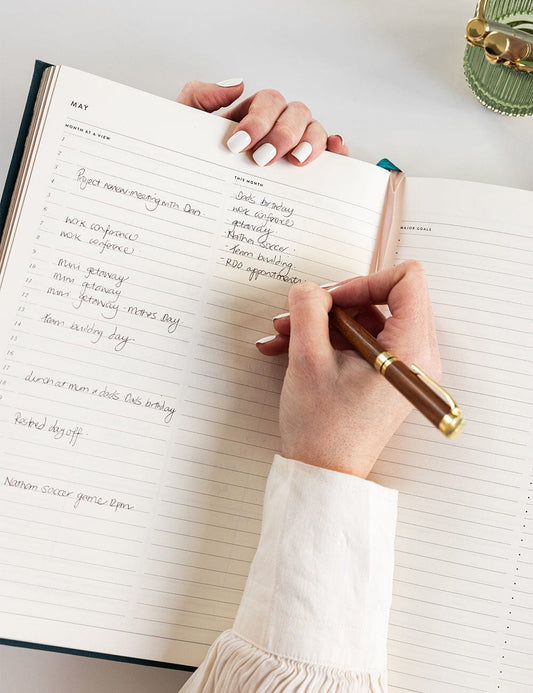 MAY
MONTH AT A VIEW
1
2
3
4 Project review meeting with Dan
5
6
7 work conference
8 work conference
9
10 mini getaway
11 mini getaway
12 mini getaway - mothers Day
13
14 team building day
15
16
17
18 lunch at mum & dads. Dads birthday
Rostered day off.
Nathan soccer game 12pm
THIS MONTH
Dads birthday
work conference
getaway
Nathan soccer.
- Team building.
- RDO appointments
MAJOR GOALS